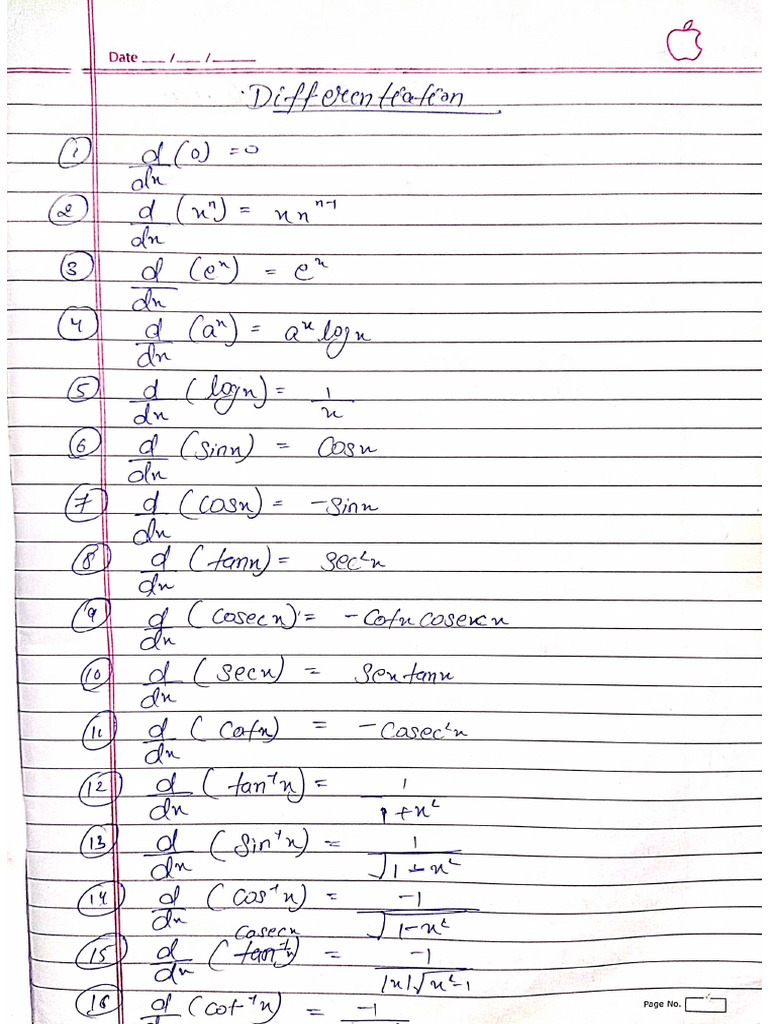 Date ___ / ___ / ______
Differentiation
① d/dx (0) = 0
② d/dx (xⁿ) = nxⁿ⁻¹
③ d/dx (eˣ) = eˣ
④ d/dx (aˣ) = aˣ log x
⑤ d/dx (log x) = 1/x
⑥ d/dx (sin x) = cos x
⑦ d/dx (cos x) = -sin x
⑧ d/dx (tan x) = sec²x
⑨ d/dx (cosec x) = -cot x cosec x
⑩ d/dx (sec x) = sex tan x
⑪ d/dx (cot x) = -cosec²x
⑫ d/dx (tan⁻¹x) = 1/(1+x²)
⑬ d/dx (sin⁻¹x) = 1/√(1-x²)
⑭ d/dx (cos⁻¹x) = -1/√(1-x²)
⑮ d/dx (cosec⁻¹x) = -1/(|x|√(x²-1))
⑯ d/dx (cot⁻¹x) = -1/
Page No.